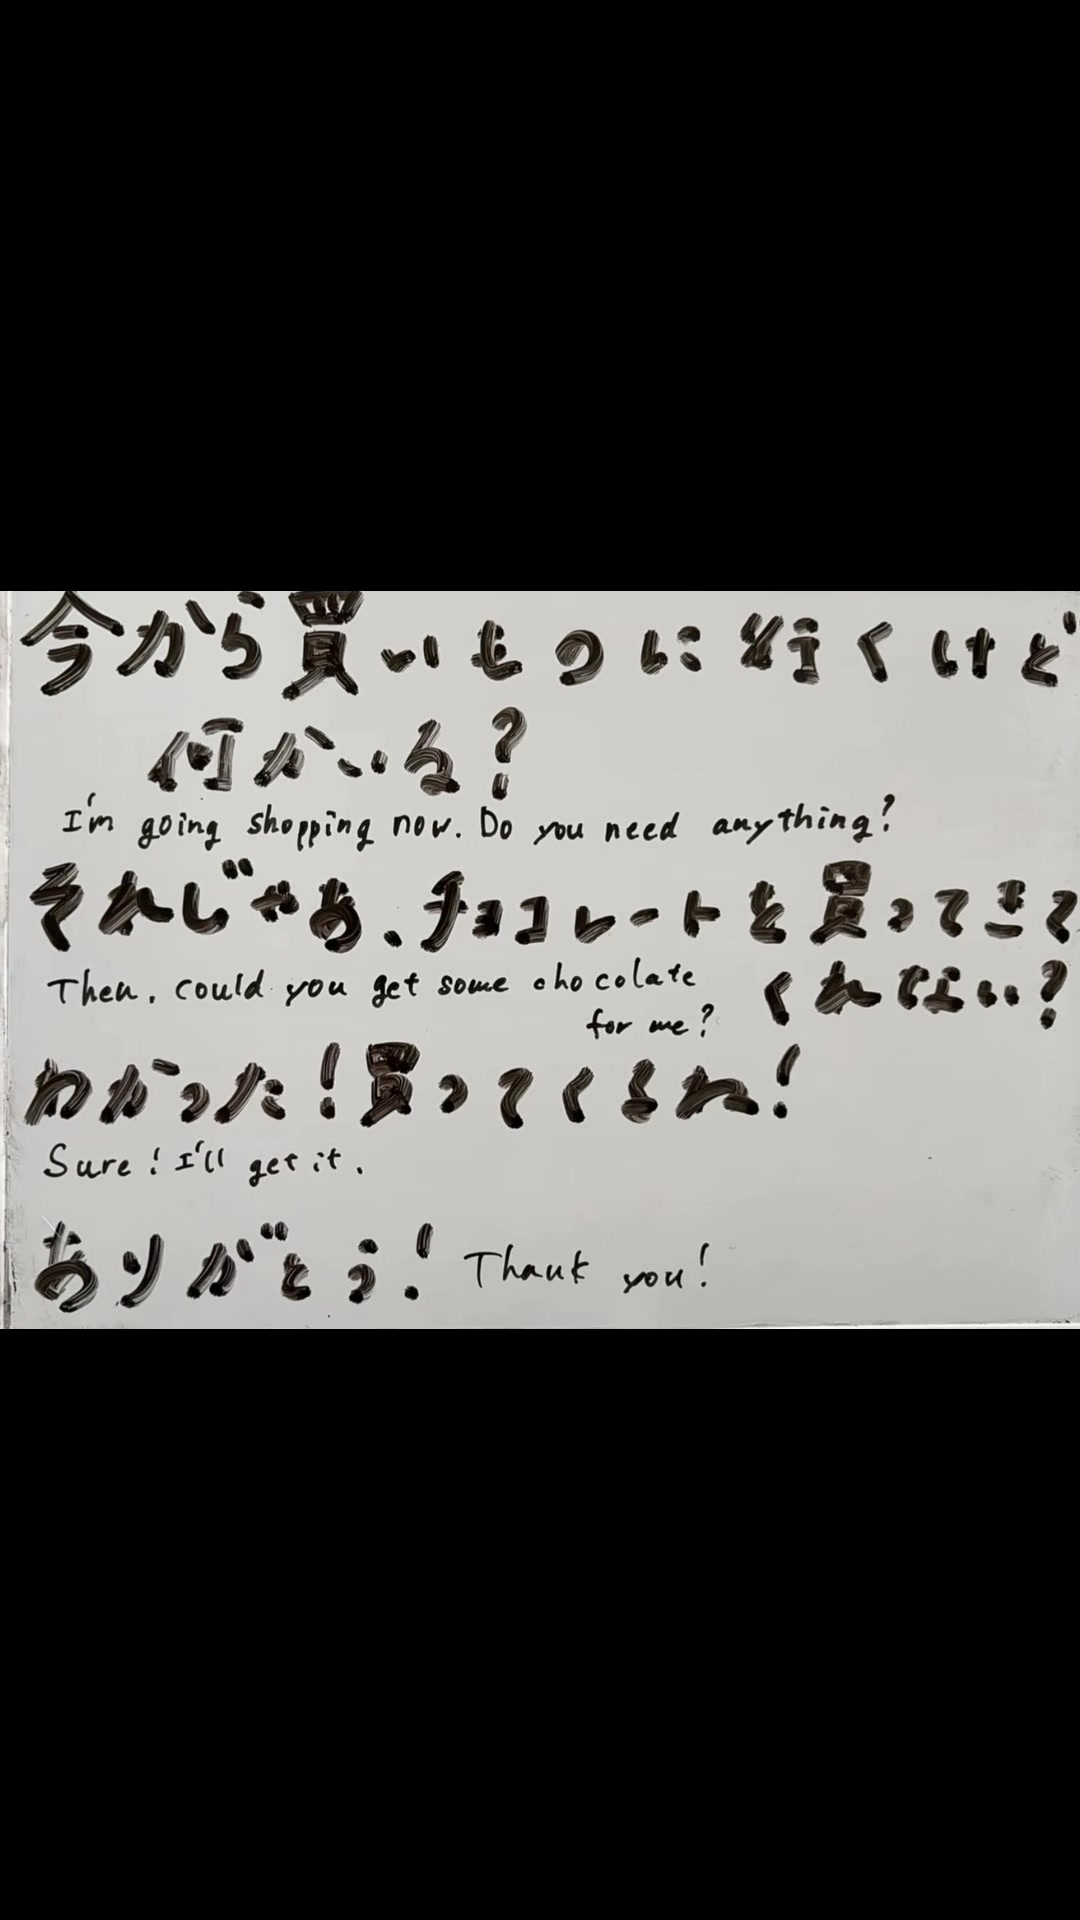 今から買いものに行くけど
何かいる？
I'm going shopping now. Do you need anything?
それじゃあ、チョコレートを買ってきて
くれない？
Then, could you get some chocolate
for me?
わかった！買ってくるね！
Sure! I'll get it.
ありがとう！ Thank you!